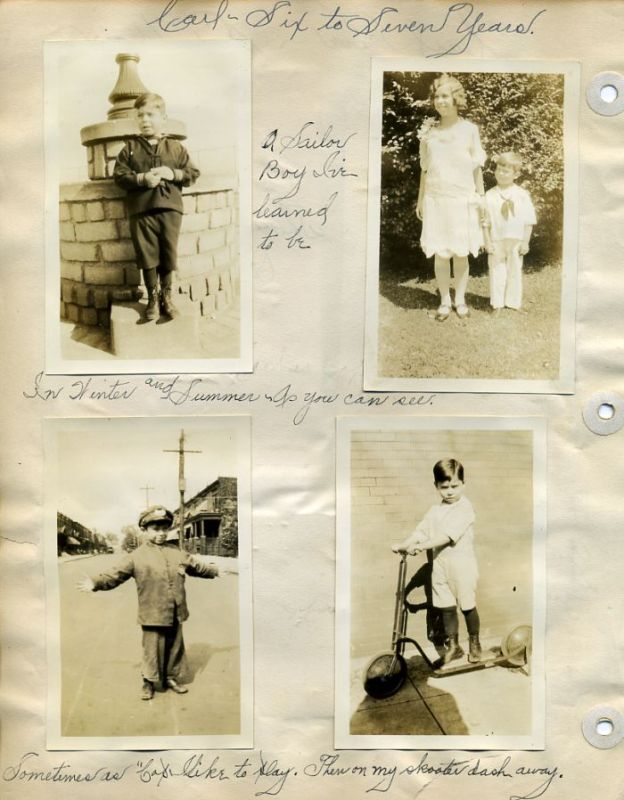 Carl - Six to Seven Years.
A Sailor
Boy I've
learned
to be
In Winter and Summer - As you can see.
Sometimes as "Cop - I like to play. Then on my skooter dash away.